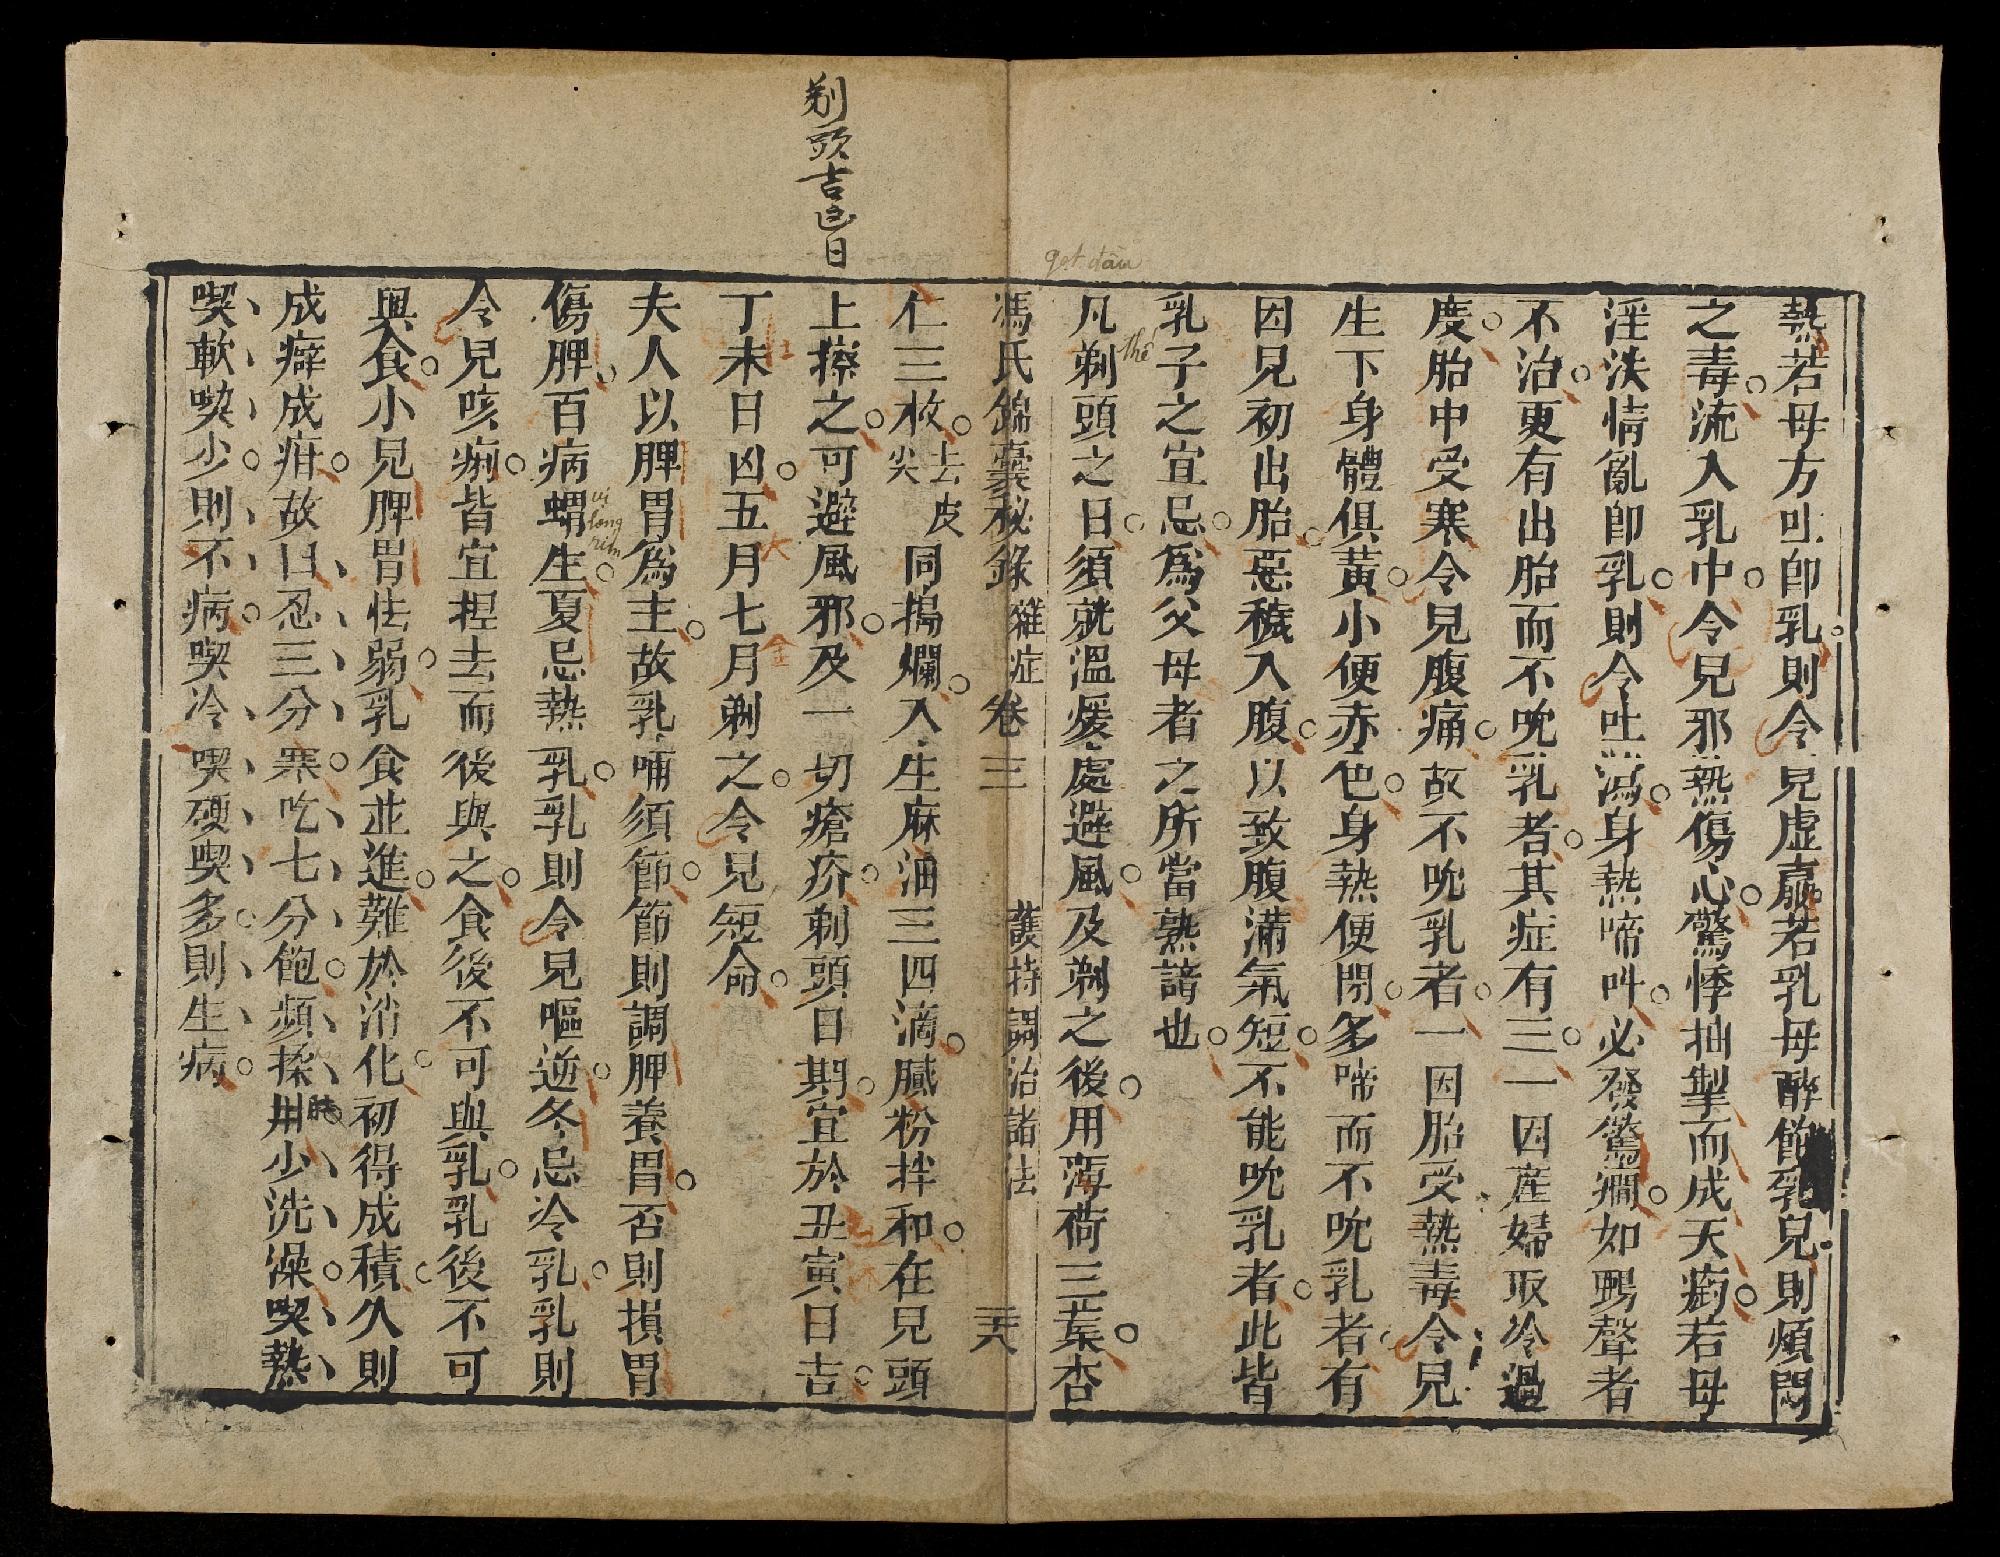 熱若母方吐卽乳則令兒虛羸若乳母醉飽乳兒則煩悶
之毒流入乳中令兒邪熱傷心驚悸抽掣而成天癇若母
淫泆情亂卽乳則令吐瀉身熱啼呌必發驚癇如鵶聲者
不治更有出胎而不吮乳者其症有三一因產婦取冷過
度胎中受寒令兒腹痛故不吮乳者一因胎受熱毒令兒
生下身體俱黃小便赤色身熱便閉多啼而不吮乳者有
因兒初出胎惡穢入腹以致腹滿氣短不能吮乳者此皆
乳子之宜忌爲父母者之所當熟諳也
gọt đầu
thế
凡剃頭之日須就溫煖處避風及剃之後用薄荷三葉杏
馮氏錦囊秘錄 雜症 卷三 護持調治諸法 三天
仁三枚去皮尖同搗爛入生麻油三四滴膩粉拌和在兒頭
剃頭吉凶日
上擦之可避風邪及一切瘡疥剃頭日期宜於丑寅日吉
丁未日凶五月七月剃之令兒短命
夫人以脾胃爲主故乳哺須節節則調脾養胃否則損胃
傷脾百病蝟生夏忌熱乳乳則令兒嘔逆冬忌冷乳乳則
令兒咳痢皆宜捏去而後與之食後不可與乳乳後不可
與食小兒脾胃怯弱乳食並進難於消化初得成積久則
成癖成疳故曰忍三分寒吃七分飽頻揉肚少洗澡喫熱
喫軟喫少則不病喫冷喫硬喫多則生病